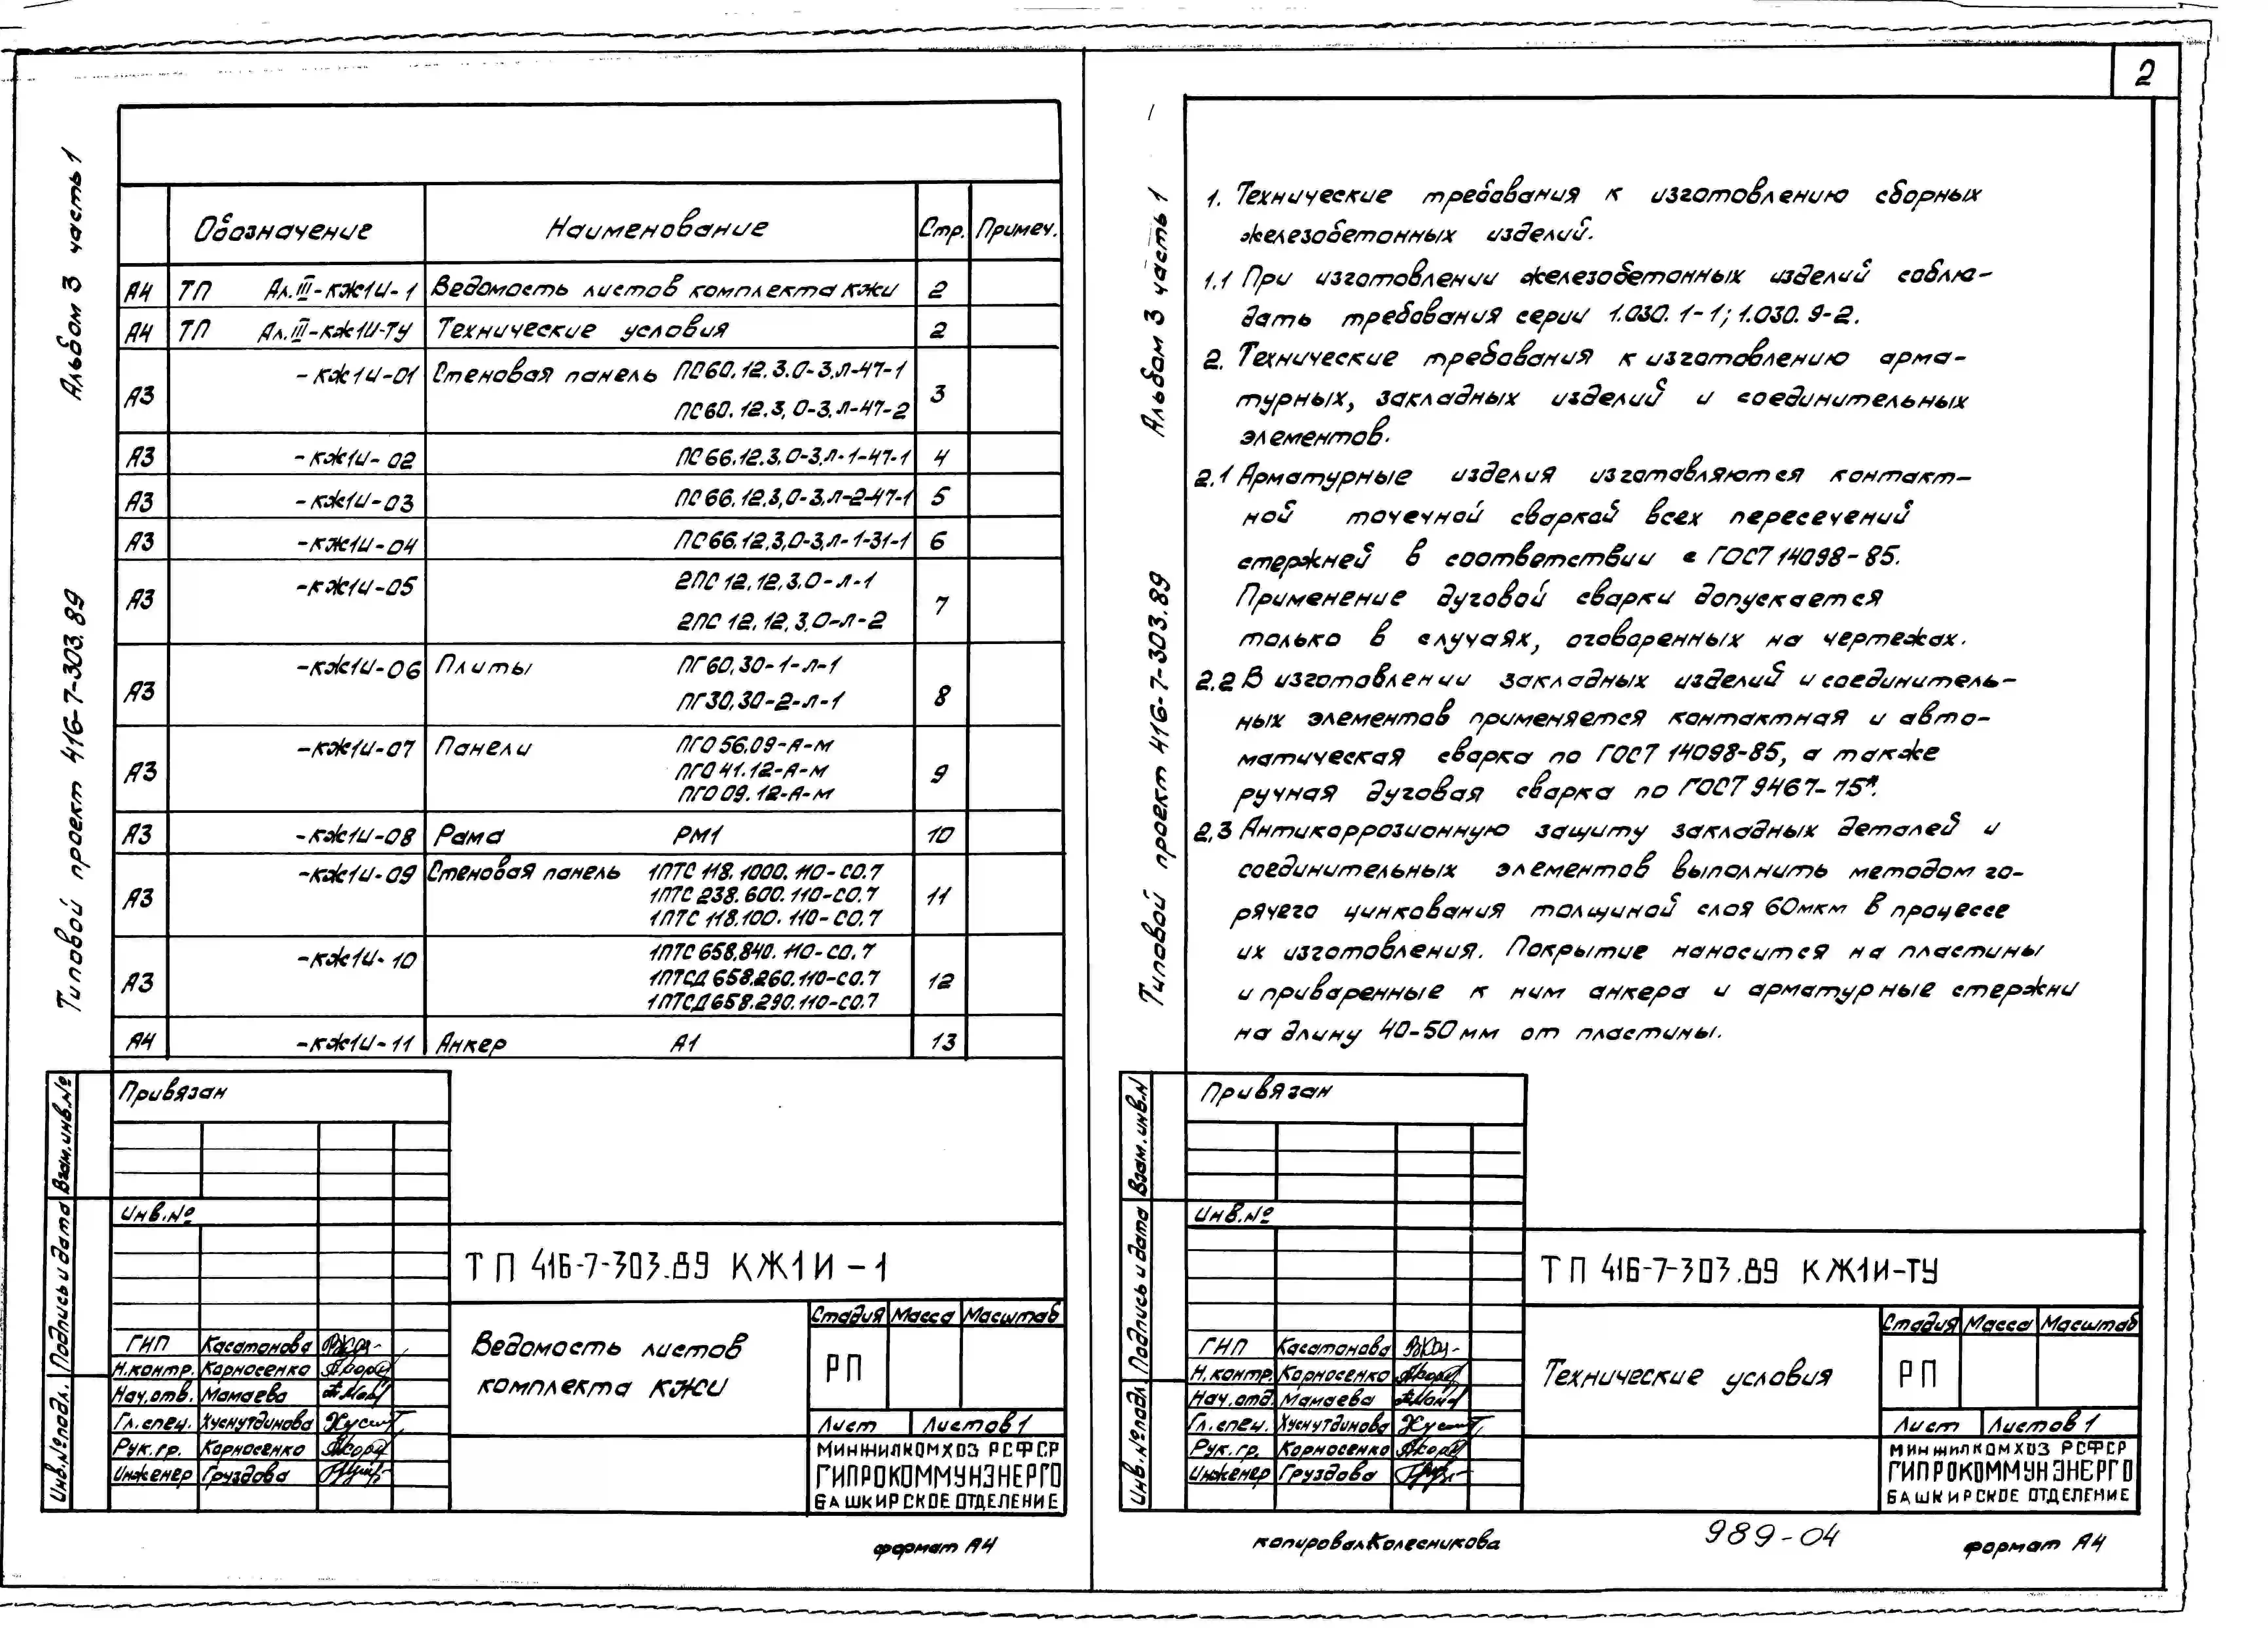 2
Альбом 3 часть 1
Типовой проект 416-7-303.89
Обозначение Наименование Стр. Примеч.
А4 ТП Ал.III-КЖ1И-1 Ведомость листов комплекта КЖИ 2
А4 ТП Ал.III-КЖ1И-ТУ Технические условия 2
А3 -КЖ1И-01 Стеновая панель ПС60.12.3.0-3.Л-47-1 3
ПС60.12.3,0-3.Л-47-2
А3 -КЖ1И-02 ПС66.12.3,0-3.Л-1-47-1 4
А3 -КЖ1И-03 ПС66.12.3,0-3.Л-2-47-1 5
А3 -КЖ1И-04 ПС66.12.3,0-3.Л-1-31-1 6
А3 -КЖ1И-05 2ПС12.12.3.0-Л-1 7
2ПС12.12.3.0-Л-2
А3 -КЖ1И-06 Плиты ПГ60.30-1-Л-1 8
ПГ30.30-2-Л-1
А3 -КЖ1И-07 Панели ПГО56.09-А-М 9
ПГО41.12-А-М
ПГО09.12-А-М
А3 -КЖ1И-08 Рама РМ1 10
А3 -КЖ1И-09 Стеновая панель 1ПТС118.1000.110-СО.7 11
1ПТС238.600.110-СО.7
1ПТС118.100.110-СО.7
А3 -КЖ1И-10 1ПТС658.840.110-СО.7 12
1ПТСД658.260.110-СО.7
1ПТСД658.290.110-СО.7
А4 -КЖ1И-11 Анкер А1 13
Привязан
Инв.№
Взам.инв.№
Подпись и дата
Инв.№подл.
ТП 416-7-303.89 КЖ1И-1
Ведомость листов
комплекта КЖИ
Стадия Масса Масштаб
РП
Лист Листов 1
ГИП Касатонова
Н.контр. Карносенко
Нач.отв. Мамаева
Гл.спец. Хуснутдинова
Рук.гр. Карносенко
Инженер Груздова
МИНЖИЛКОМХОЗ РСФСР
ГИПРОКОММУНЭНЕРГО
БАШКИРСКОЕ ОТДЕЛЕНИЕ
формат А4
Альбом 3 часть 1
Типовой проект 416-7-303.89
1. Технические требования к изготовлению сборных
железобетонных изделий.
1.1 При изготовлении железобетонных изделий соблю-
дать требования серии 1.030.1-1; 1.030.9-2.
2. Технические требования к изготовлению арма-
турных, закладных изделий и соединительных
элементов.
2.1 Арматурные изделия изготавляются контакт-
ной точечной сваркой всех пересечений
стержней в соответствии с ГОСТ 14098-85.
Применение дуговой сварки допускается
только в случаях, оговоренных на чертежах.
2.2 В изготовлении закладных изделий и соединитель-
ных элементов применяется контактная и авто-
матическая сварка по ГОСТ 14098-85, а также
ручная дуговая сварка по ГОСТ 9467-75*.
2.3 Антикоррозионную защиту закладных деталей и
соединительных элементов выполнить методом го-
рячего цинкования толщиной слоя 60мкм в процессе
их изготовления. Покрытие наносится на пластины
и приваренные к ним анкера и арматурные стержни
на длину 40-50мм от пластины.
Привязан
Инв.№
Взам.инв.N
Подпись и дата
Инв.№подл.
ТП 416-7-303.89 КЖ1И-ТУ
Технические условия
Стадия Масса Масштаб
РП
Лист Листов 1
ГИП Касатонова
Н.контр. Карносенко
Нач.отд. Мамаева
Гл.спец. Хуснутдинова
Рук.гр. Карносенко
Инженер Груздова
МИНЖИЛКОМХОЗ РСФСР
ГИПРОКОММУНЭНЕРГО
БАШКИРСКОЕ ОТДЕЛЕНИЕ
копировал Колесникова
989-04
формат А4